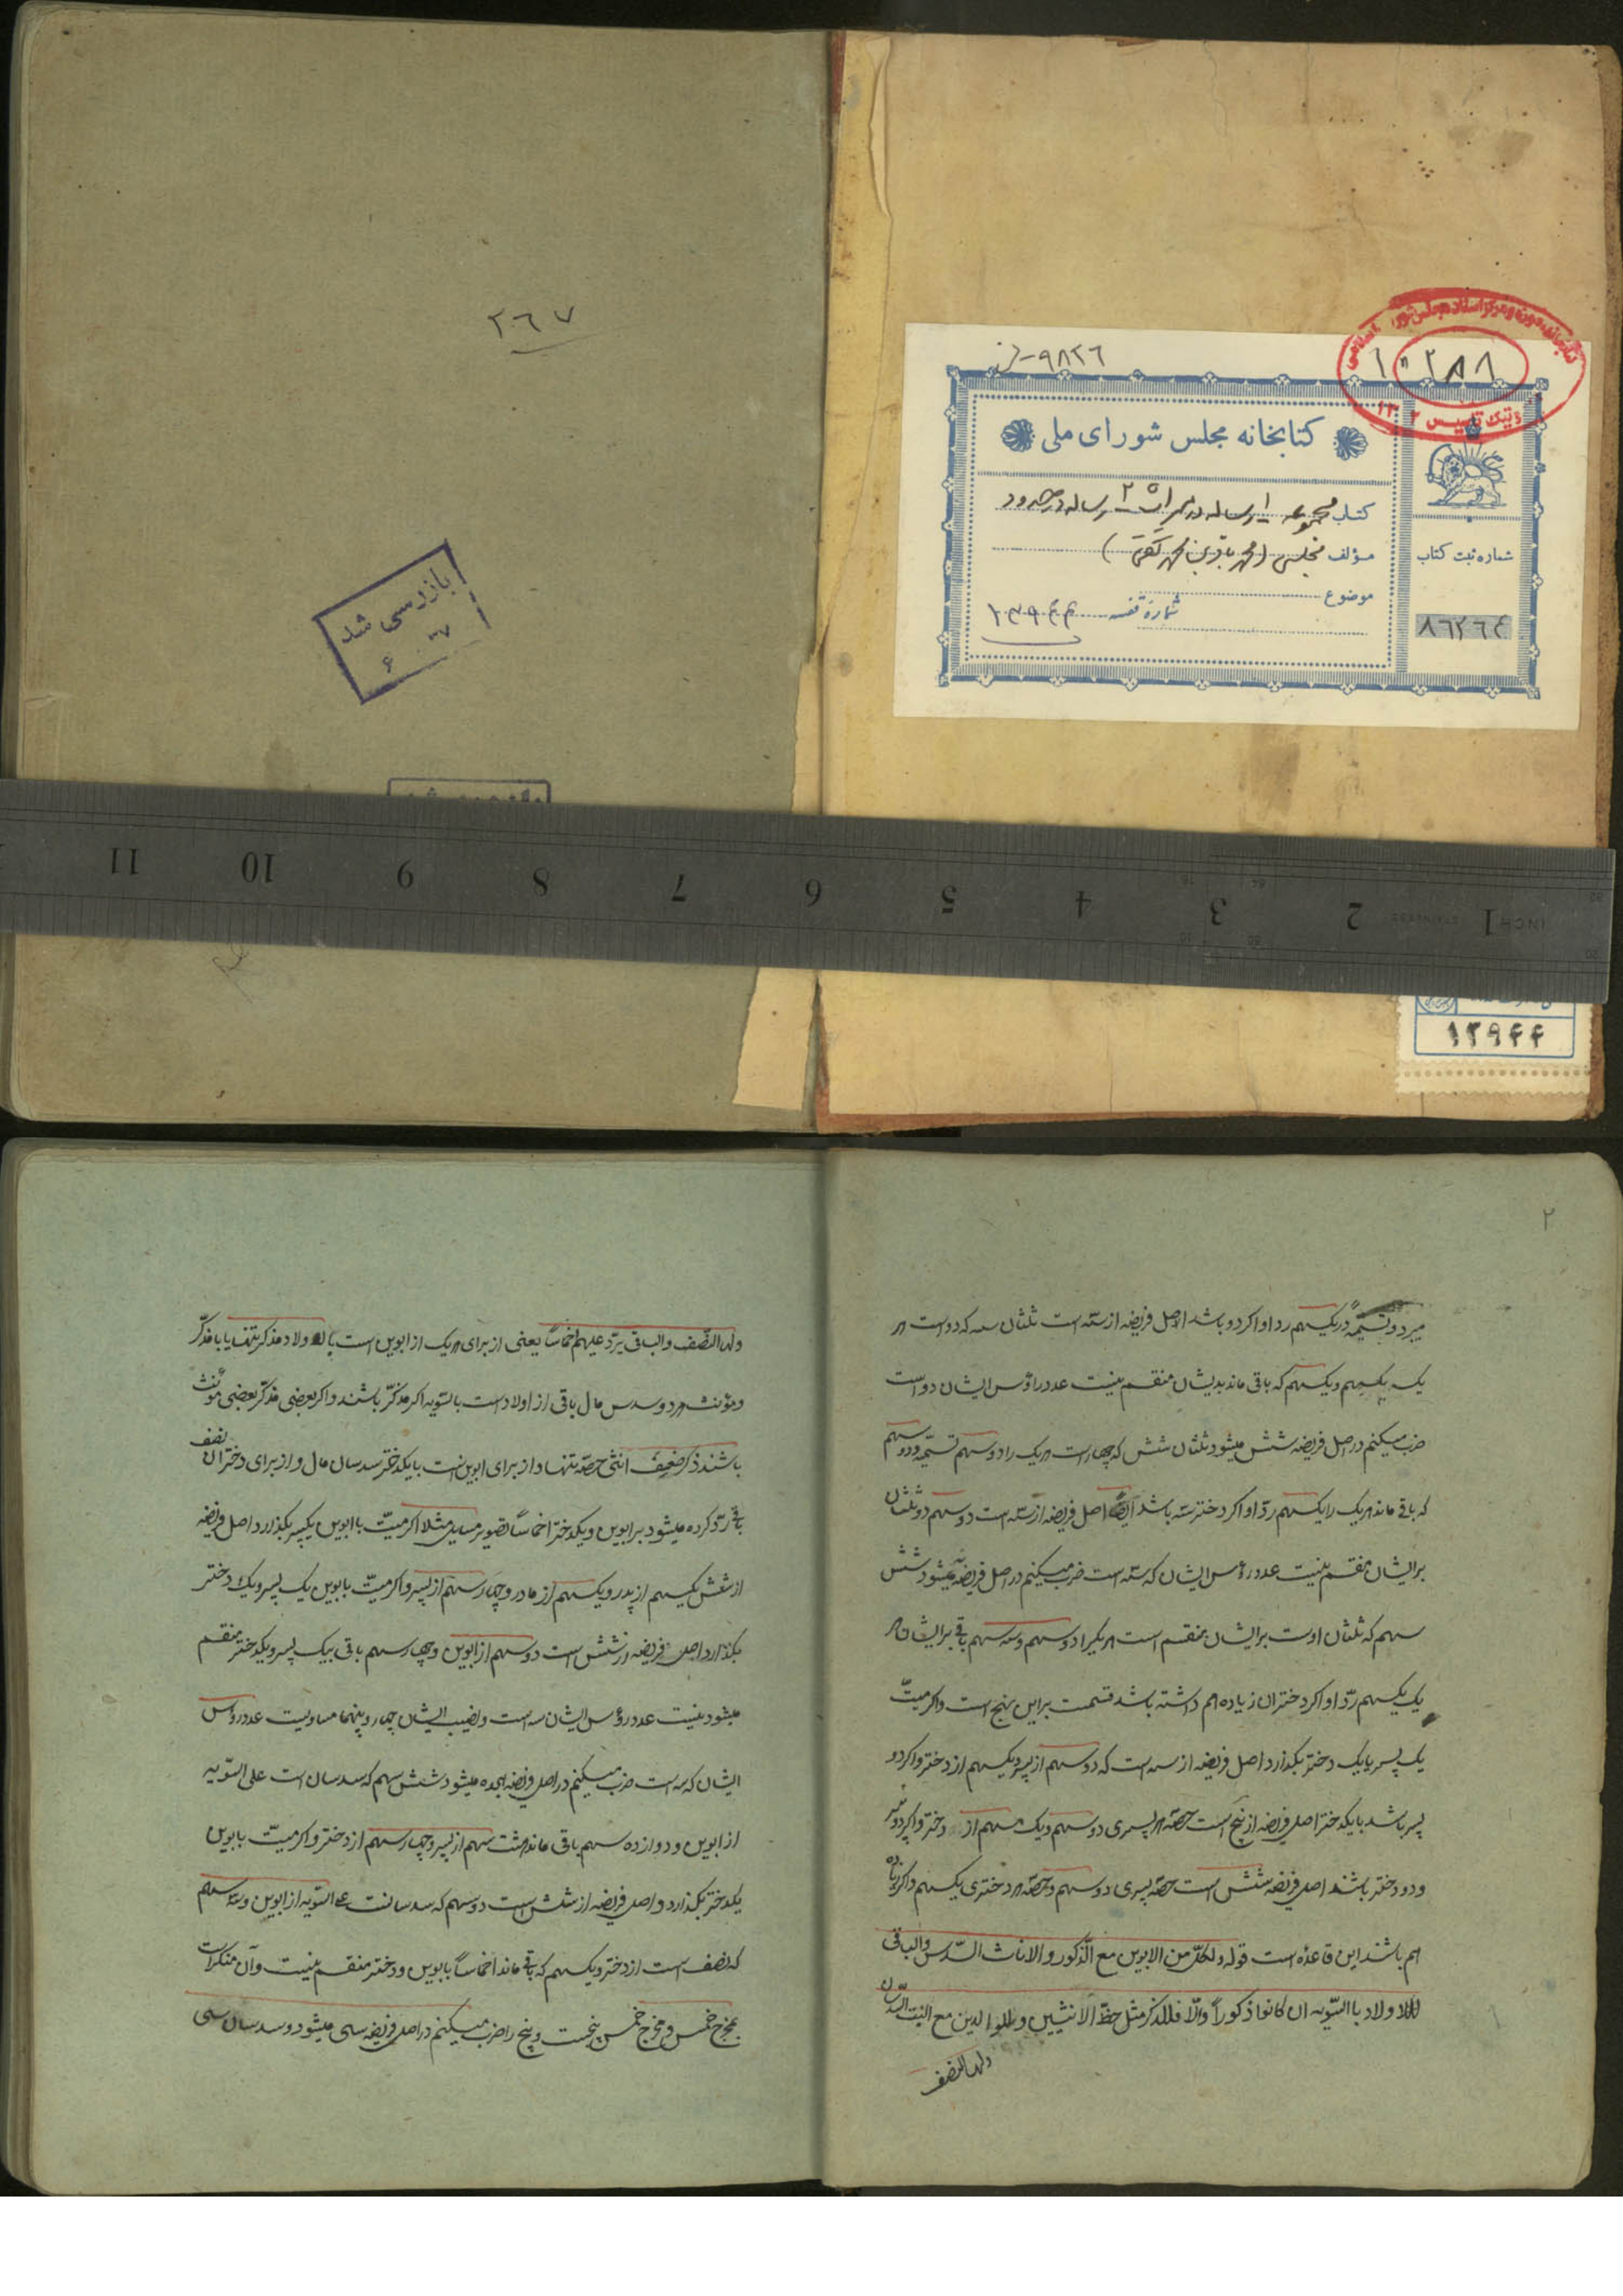 ۲۶۷
بازرسی شد
۶ ۳۷
۹۸۲۶
۱۰۲۸۸
کتابخانه مجلس شورای ملی
کتاب مجموعه ۱ رساله در میراث ۲ رساله در حدود
مؤلف مجلسی (محمد باقر بن محمد تقی)
موضوع
شماره قفسه ۱۳۹۴۴
شماره ثبت کتاب
۸۶۲۶۴
11 10 9 8 7 6 5 4 3 2 1 INCH
۱۳۹۴۴
۲
میبرد و تسمیةً و یکسهم رد او اگر دو باشد اصل فریضه از سته است ثلثان سه که دو است هر
یک یکسهم و یکسهم که باقی ماند بدیشان منقسم نیست عدد رؤس ایشان دو است
ضرب میکنیم در اصل فریضه شش میشود ثلثان شش که چهار است هر یک را دو سهم تسمیه و دو سهم
که باقی ماند هر یک را یکسهم ردّ او اگر دختر سه باشد ایضاً اصل فریضه از سه است دو سهم دو ثلثان
برایشان منقسم نیست عدد رؤس ایشان که سه است ضرب میکنیم در اصل فریضه نه میشود شش
سهم که ثلثان اوست برایشان منقسم است هر یکرا دو سهم و سه سهم باقی برایشان هر
یک یکسهم ردّ او اگر دختران زیاده هم داشته باشد قسمت براین نهج است و اگر میتّ
یک پسر با یک دختر بگذارد اصل فریضه از سه است که دو سهم از پسر و یکسهم از دختر و اگر دو
پسر باشد با یکدختر اصل فریضه از پنج است حصّه هر پسری دو سهم و یک سهم از دختر و اگر دو پسر
و دو دختر باشند اصل فریضه شش است حصّه پسری دو سهم و حصّه هر دختری یکسهم و اگر زیاده
هم باشند این قاعده است قوله و لکلّ من الابوین مع الذّکور و الاناث السّدس و الباقی
للاولاد بالسّویه ان کانوا ذکوراً و الّا فللذکر مثل حظّ الانثیین و للوالدین مع البنت السّدسان
ولها النصف
ولها النّصف و الباقی یردّ علیهم اخماساً یعنی از برای هر یک از ابوین است با اولاد مذکر تنها یا با مذکّر
و مؤنث هر دو سدس مال باقی از اولاد است بالسّویه اگر مذکّر باشند و اگر بعضی مذکّر بعضی مؤنث
باشند ذکر ضعف انثی حصّه تنها و از برای ابوین است با یکدختر سدسان مال و از برای دختر آن نصف
باقی ردّ کرده میشود بر ابوین و یکدختر اخماساً تصویر مسایل مثلا اگر میتّ با ابوین یکپسر بگذارد اصل فریضه
از شش یکسهم از پدر و یکسهم از مادر و چهار سهم از پسر و اگر میتّ با ابوین یک پسر و یک دختر
بگذارد اصل فریضه از شش است دو سهم از ابوین و چهار سهم باقی بیک پسر و یکدختر منقسم
میشود نیست عدد رؤس ایشان سه است و نصیب ایشان چهار و بینهما مساویست عدد رؤس
ایشان که سه است ضرب میکنیم در اصل فریضه هجده میشود شش سهم که سدسان است علی السّویه
از ابوین و دوازده سهم باقی ماند هشت سهم از پسر و چهار سهم از دختر و اگر میتّ با ابوین
یکدختر بگذارد و اصل فریضه از شش است دو سهم که سدسانست علی السّویه از ابوین و سه سهم
که نصف است از دختر و یکسهم که باقی ماند اخماساً با ابوین و دختر منقسم نیست و آن منکرات
بمخرج خمس و مخرج خمس پنجست و پنج را ضرب میکنیم در اصل فریضه سی میشود و سدسان سی